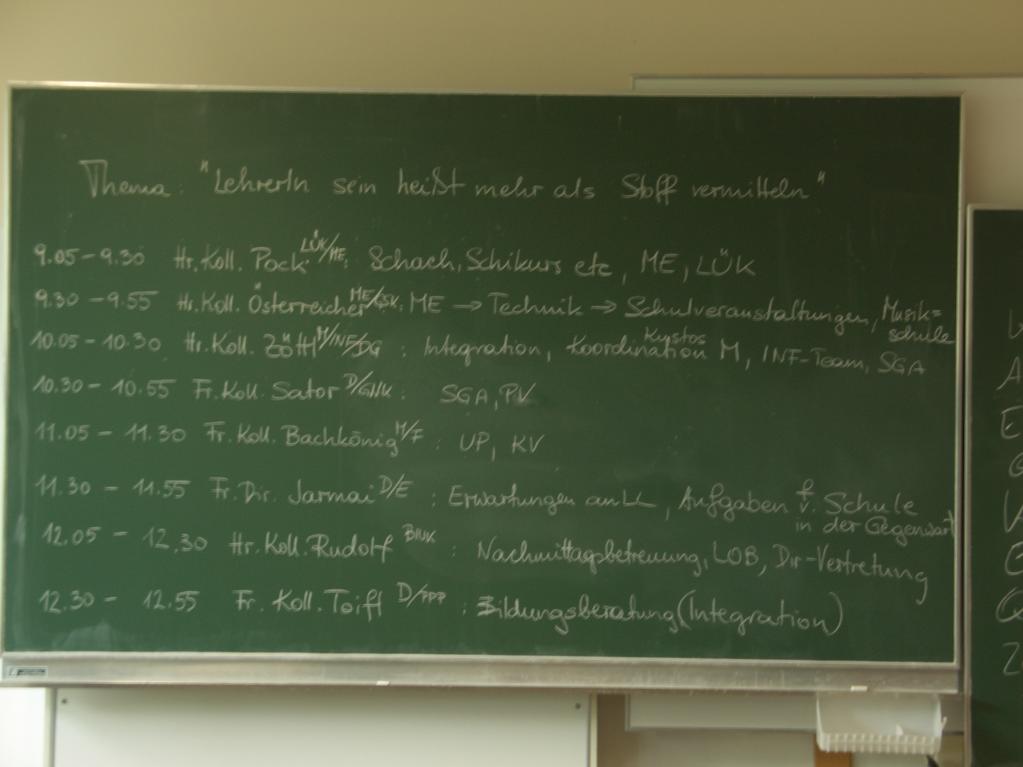 Thema: "LehrerIn sein heißt mehr als Stoff vermitteln"
9.05-9.30 Hr. Koll. Pock LÜK/ME: Schach, Schikurs etc, ME, LÜK
9.30-9.55 Hr. Koll. Österreicher ME/: ME → Technik → Schulveranstaltungen, Musik=
schule
Kustos
10.05-10.30 Hr. Koll. M/INF/DG: Integration, Koordination M, INF-Team, SGA
10.30-10.55 Fr. Koll. Sator D/: SGA, PV
11.05-11.30 Fr. Koll. Bachkönig M/F: UP, KV
11.30-11.55 Fr. Dir. Jarmai D/E: Erwartungen an LL, Aufgaben f v. Schule
in der Gegenwart
12.05-12.30 Hr. Koll. Rudolf BIUK: Nachmittagsbetreuung, LOB, Dir-Vertretung
12.30-12.55 Fr. Koll. Toifl D/PPP: Bildungsberatung (Integration)